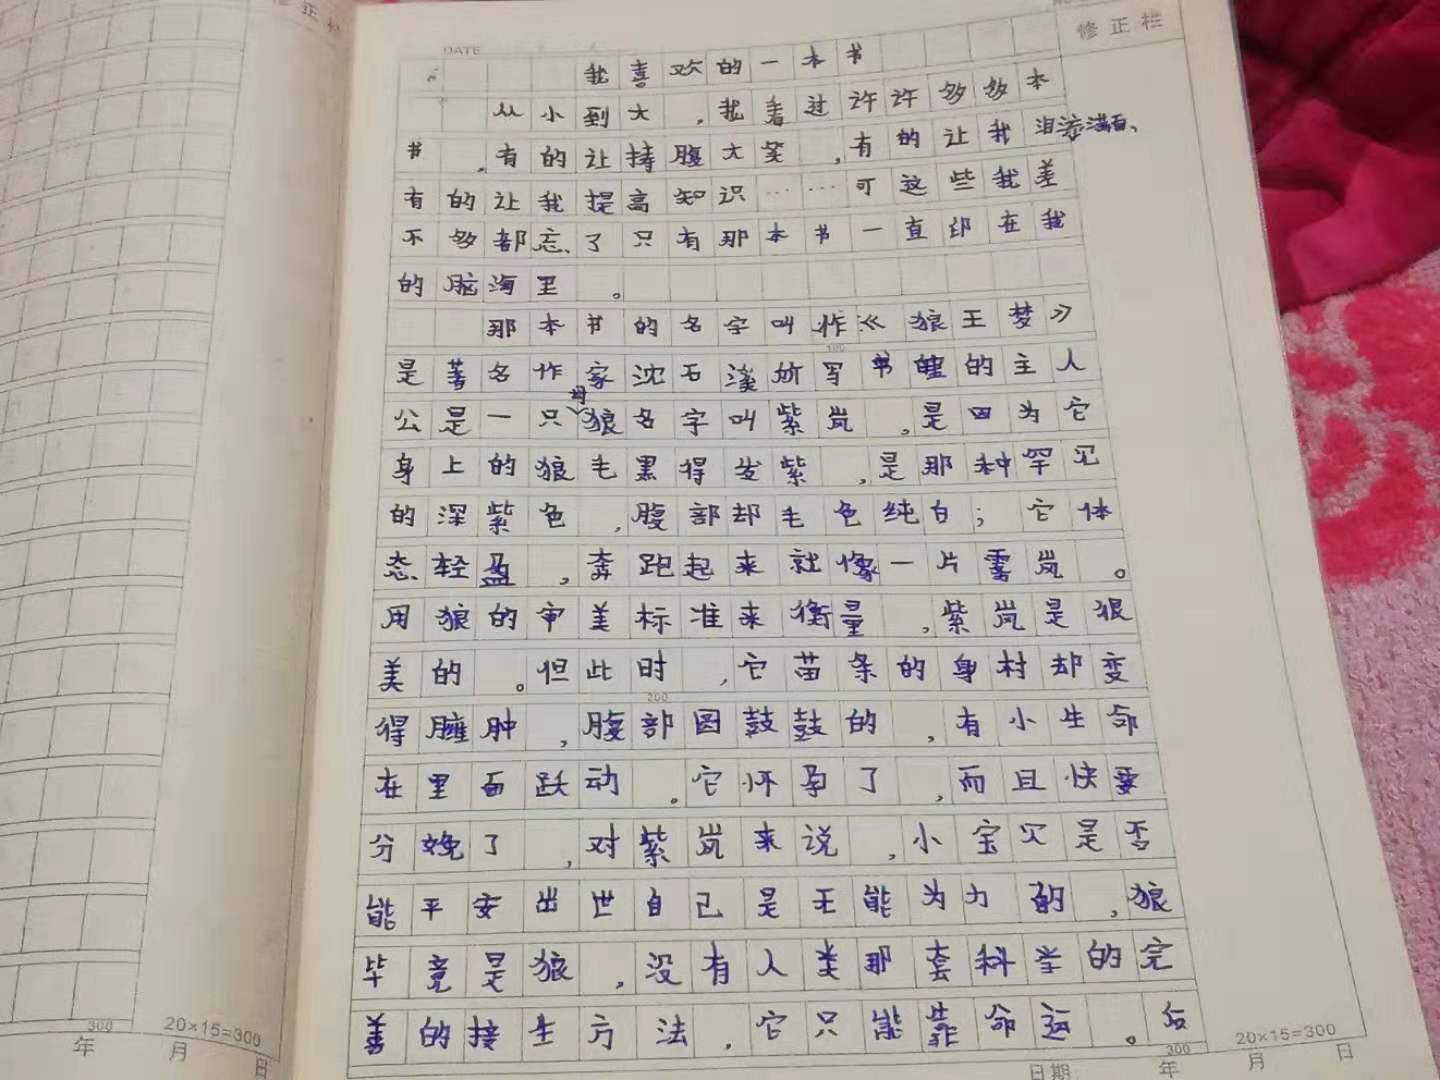 修正栏
DATE
修正栏
我喜欢的一本书
从小到大,我看过许许多多本
书,有的让捧腹大笑,有的让我泪流满面、
有的让我提高知识……可这些我差
不多都忘了只有那本书一直印在我
的脑海里。
那本书的名字叫作《狼王梦》
是著名作家沈石溪所写书的主人
公是一只母狼名字叫紫岚,是因为它
身上的狼毛黑得发紫,是那种罕见
的深紫色,腹部却毛色纯白;它体
态轻盈,奔跑起来就像一片雾岚。
用狼的审美标准来衡量,紫岚是狠
美的。但此时,它苗条的身材却变
得臃肿,腹部圆鼓鼓的,有小生命
在里面跃动。它怀孕了,而且快要
分娩了,对紫岚来说,小宝贝是否
能平安出世自己是无能为力的,狼
毕竟是狼,没有人类那套科学的完
善的接生方法,它只能靠命运。后
100
200
300
20×15=300
年 月 日
300
20×15=300
日期: 年 月 日